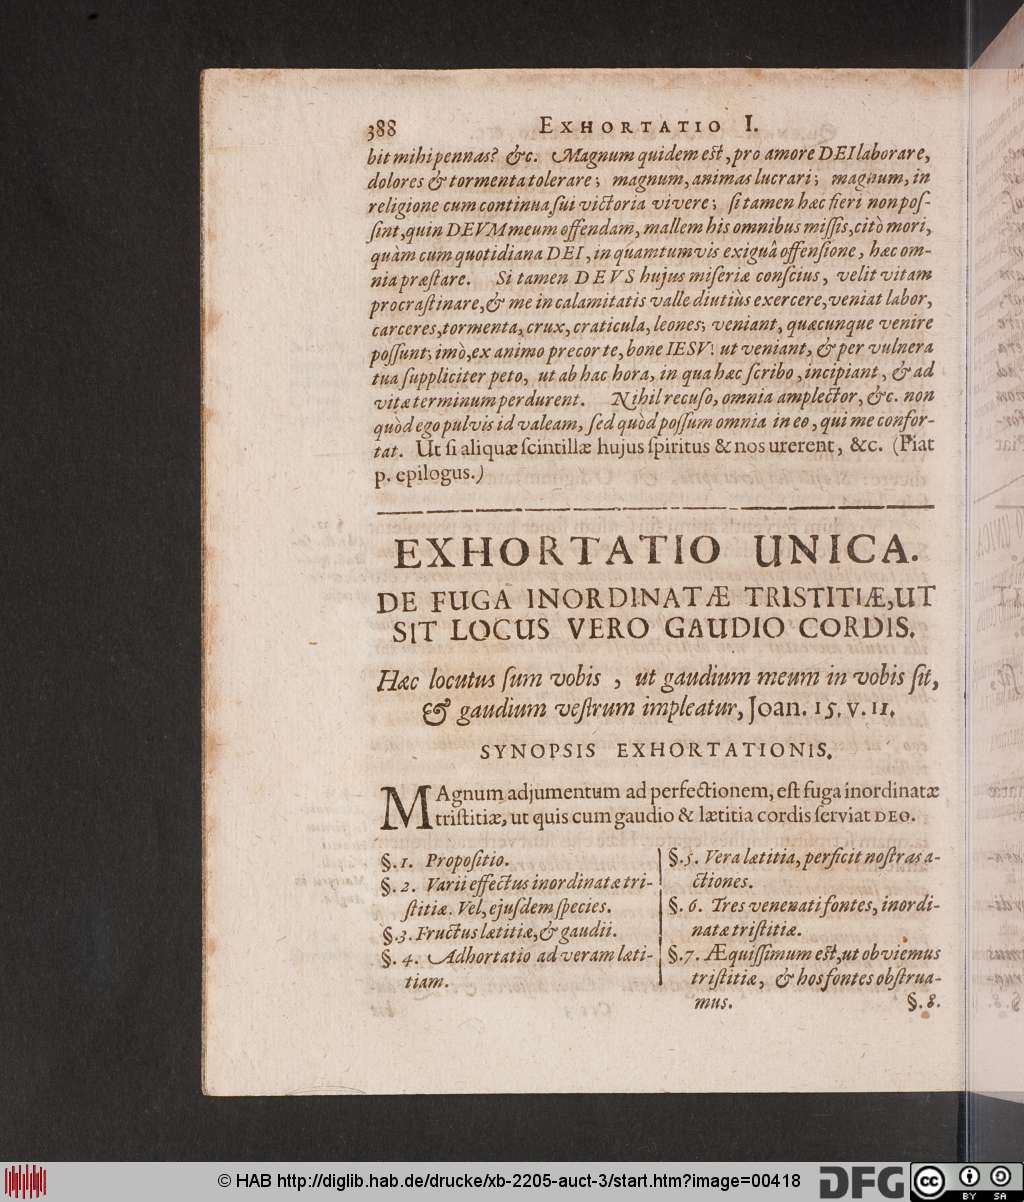 388 EXHORTATIO I.
bit mihi pennas? &c. Magnum quidem est, pro amore DEI laborare,
dolores & tormenta tolerare; magnum, animas lucrari; magnum, in
religione cum continua ſui victoria vivere; ſi tamen hæc fieri non poſ-
ſint, quin DEVM meum offendam, mallem his omnibus miſſis, citò mori,
quàm cum quotidiana DEI, in quamtumvis exiguâ offenſione, hæc om-
nia præſtare. Si tamen DEVS hujus miſeriæ conſcius, velit vitam
procraſtinare, & me in calamitatis valle diutiùs exercere, veniat labor,
carceres, tormenta, crux, craticula, leones; veniant, quæcunque venire
poſſunt; imò, ex animo precor te, bone IESV! ut veniant, & per vulnera
tua ſuppliciter peto, ut ab hac hora, in qua hæc ſcribo, incipiant, & ad
vitæ terminum perdurent. Nihil recuſo, omnia amplector, &c. non
quòd ego pulvis id valeam, ſed quòd poſſum omnia in eo, qui me confor-
tat. Ut ſi aliquæ ſcintillæ hujus ſpiritus & nos urerent, &c. (Fiat
p. epilogus.)
EXHORTATIO UNICA.
DE FUGA INORDINATÆ TRISTITIÆ, UT
SIT LOCUS VERO GAUDIO CORDIS.
Hæc locutus ſum vobis, ut gaudium meum in vobis ſit,
& gaudium veſtrum impleatur, Joan. 15. v. 11.
SYNOPSIS EXHORTATIONIS.
MAgnum adjumentum ad perfectionem, eſt fuga inordinatæ
triſtitiæ, ut quis cum gaudio & lætitia cordis ſerviat DEO.
§. 1. Propoſitio.
§. 2. Varii effectus inordinatæ tri-
ſtitiæ. Vel, ejuſdem ſpecies.
§. 3. Fructus lætitiæ, & gaudii.
§. 4. Adhortatio ad veram læti-
tiam.
§. 5. Vera lætitia, perficit noſtras a-
ctiones.
§. 6. Tres venenati fontes, inordi-
natæ triſtitiæ.
§. 7. Æquiſſimum est, ut obviemus
triſtitiæ, & hos fontes obſtrua-
mus. §. 8.
© HAB http://diglib.hab.de/drucke/xb-2205-auct-3/start.htm?image=00418
DFG
cc
BY SA